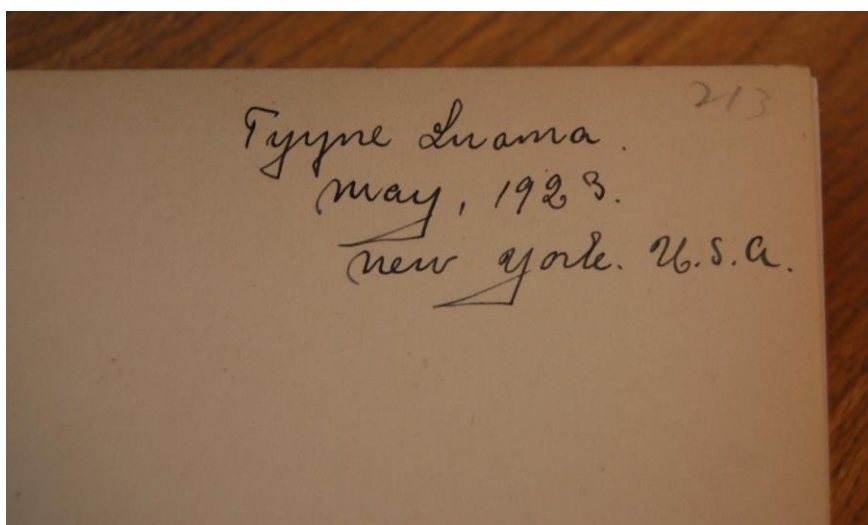 213
Tyyne Luoma.
May, 1923.
New York. U.S.A.